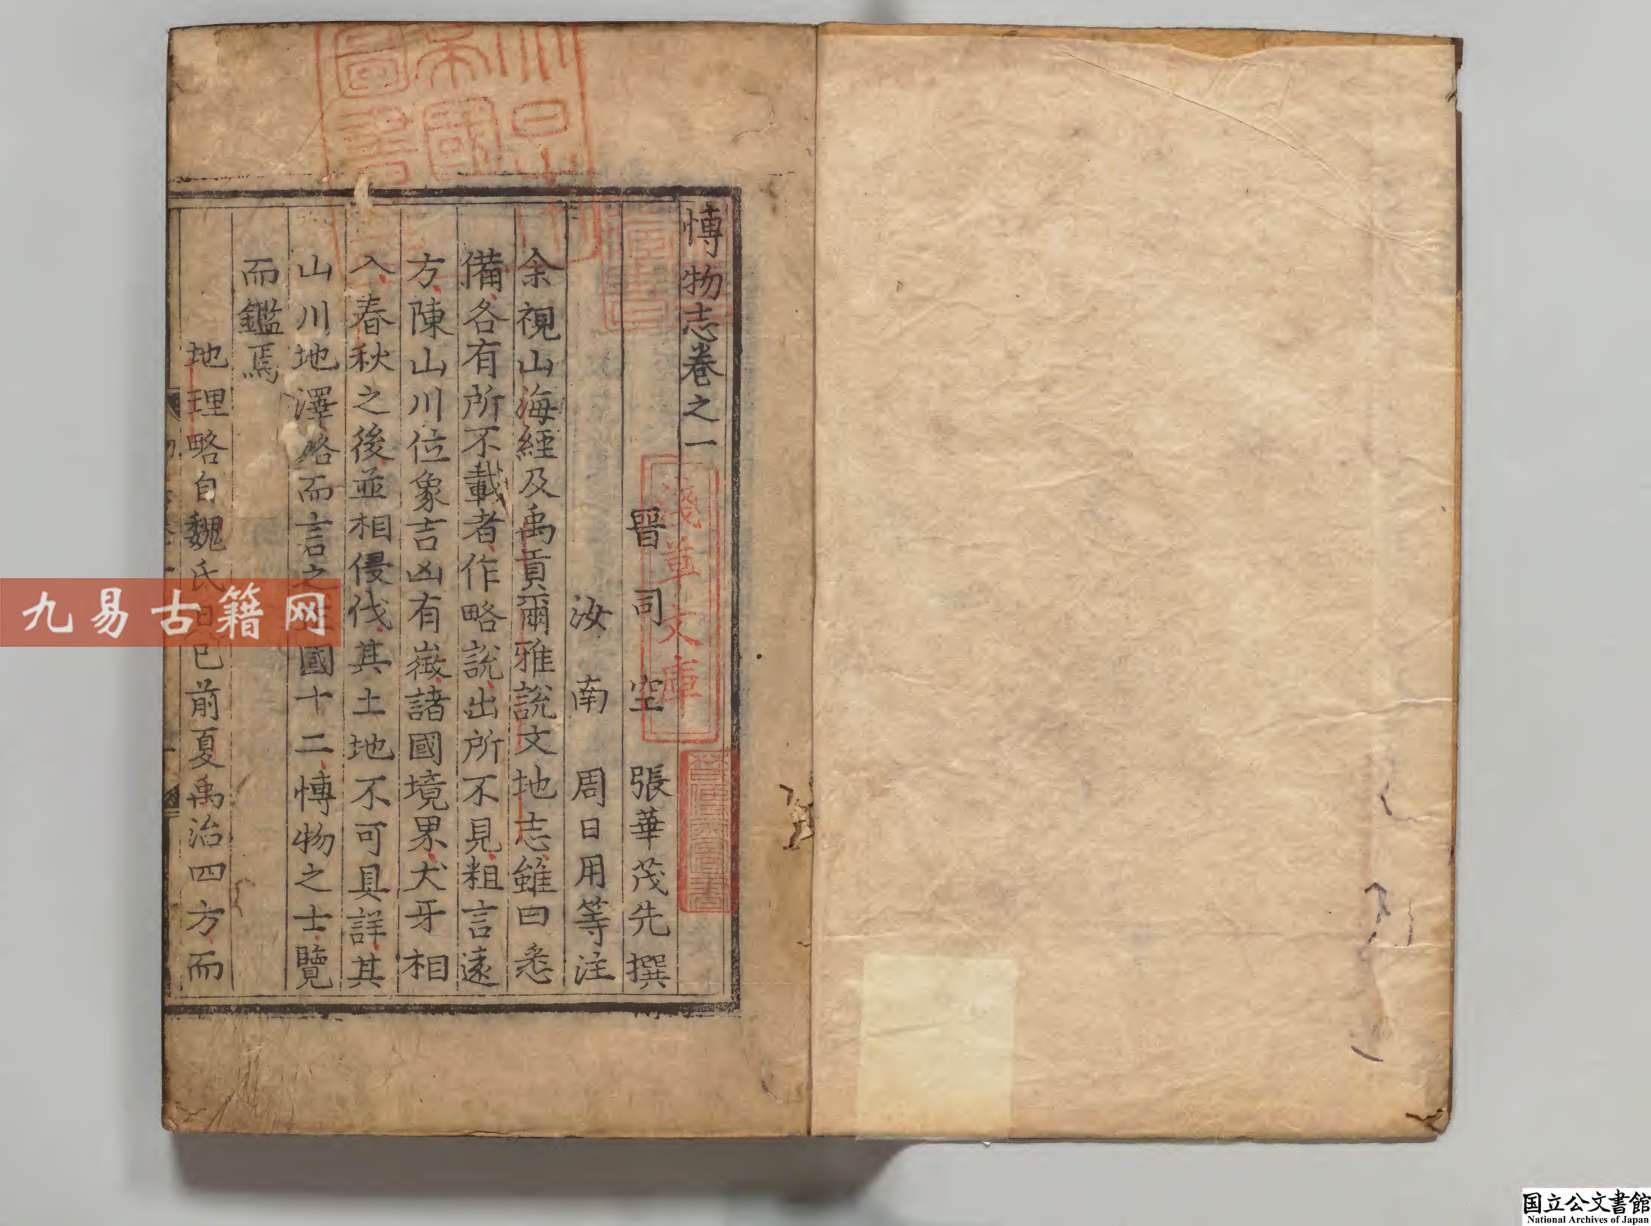 愽物志卷之一
晉司空張華茂先撰
汝南周日用等注
余視山海經及禹貢爾雅說文地志雖曰悉
備各有所不載者作略說出所不見粗言遠
方陳山川位象吉凶有嶶諸國境界犬牙相
入春秋之後並相侵伐其土地不可具詳其
山川地澤略而言之國十二愽物之士覽
而鑑焉
地理略自魏氏已前夏禹治四方而
淺草文庫
九易古籍网
国立公文書館
National Archives of Japan